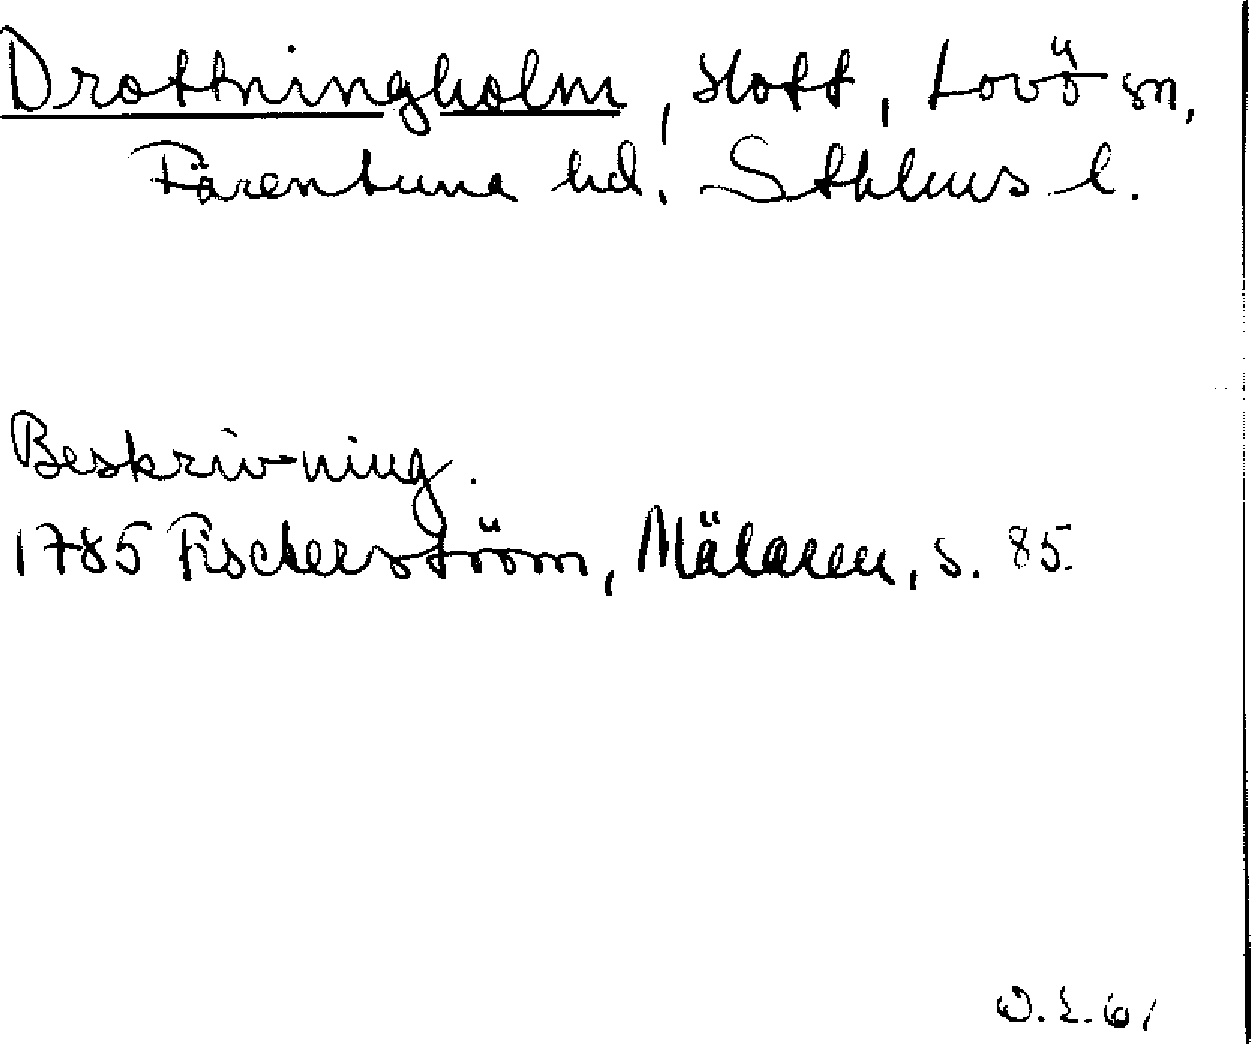 Drottningholm, slott, Lovö sn,
Färentuna hd, Sthlms l.
Beskrivning.
1785 Fischerström, Mälaren, s. 85.